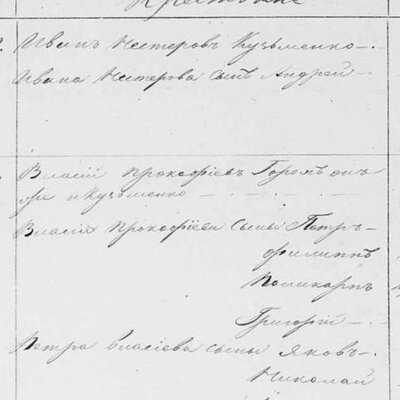 Крестьяне
Иванъ Нестеровъ Кузьменко
Ивана Нестерова сынъ Андрей
Власій Прокофіевъ
же и Кузьменко
Власія Прокофіева сыны Петръ
Филиппъ
Поликарпъ
Григорій
Петра Власіева сыны Яковъ
Николай